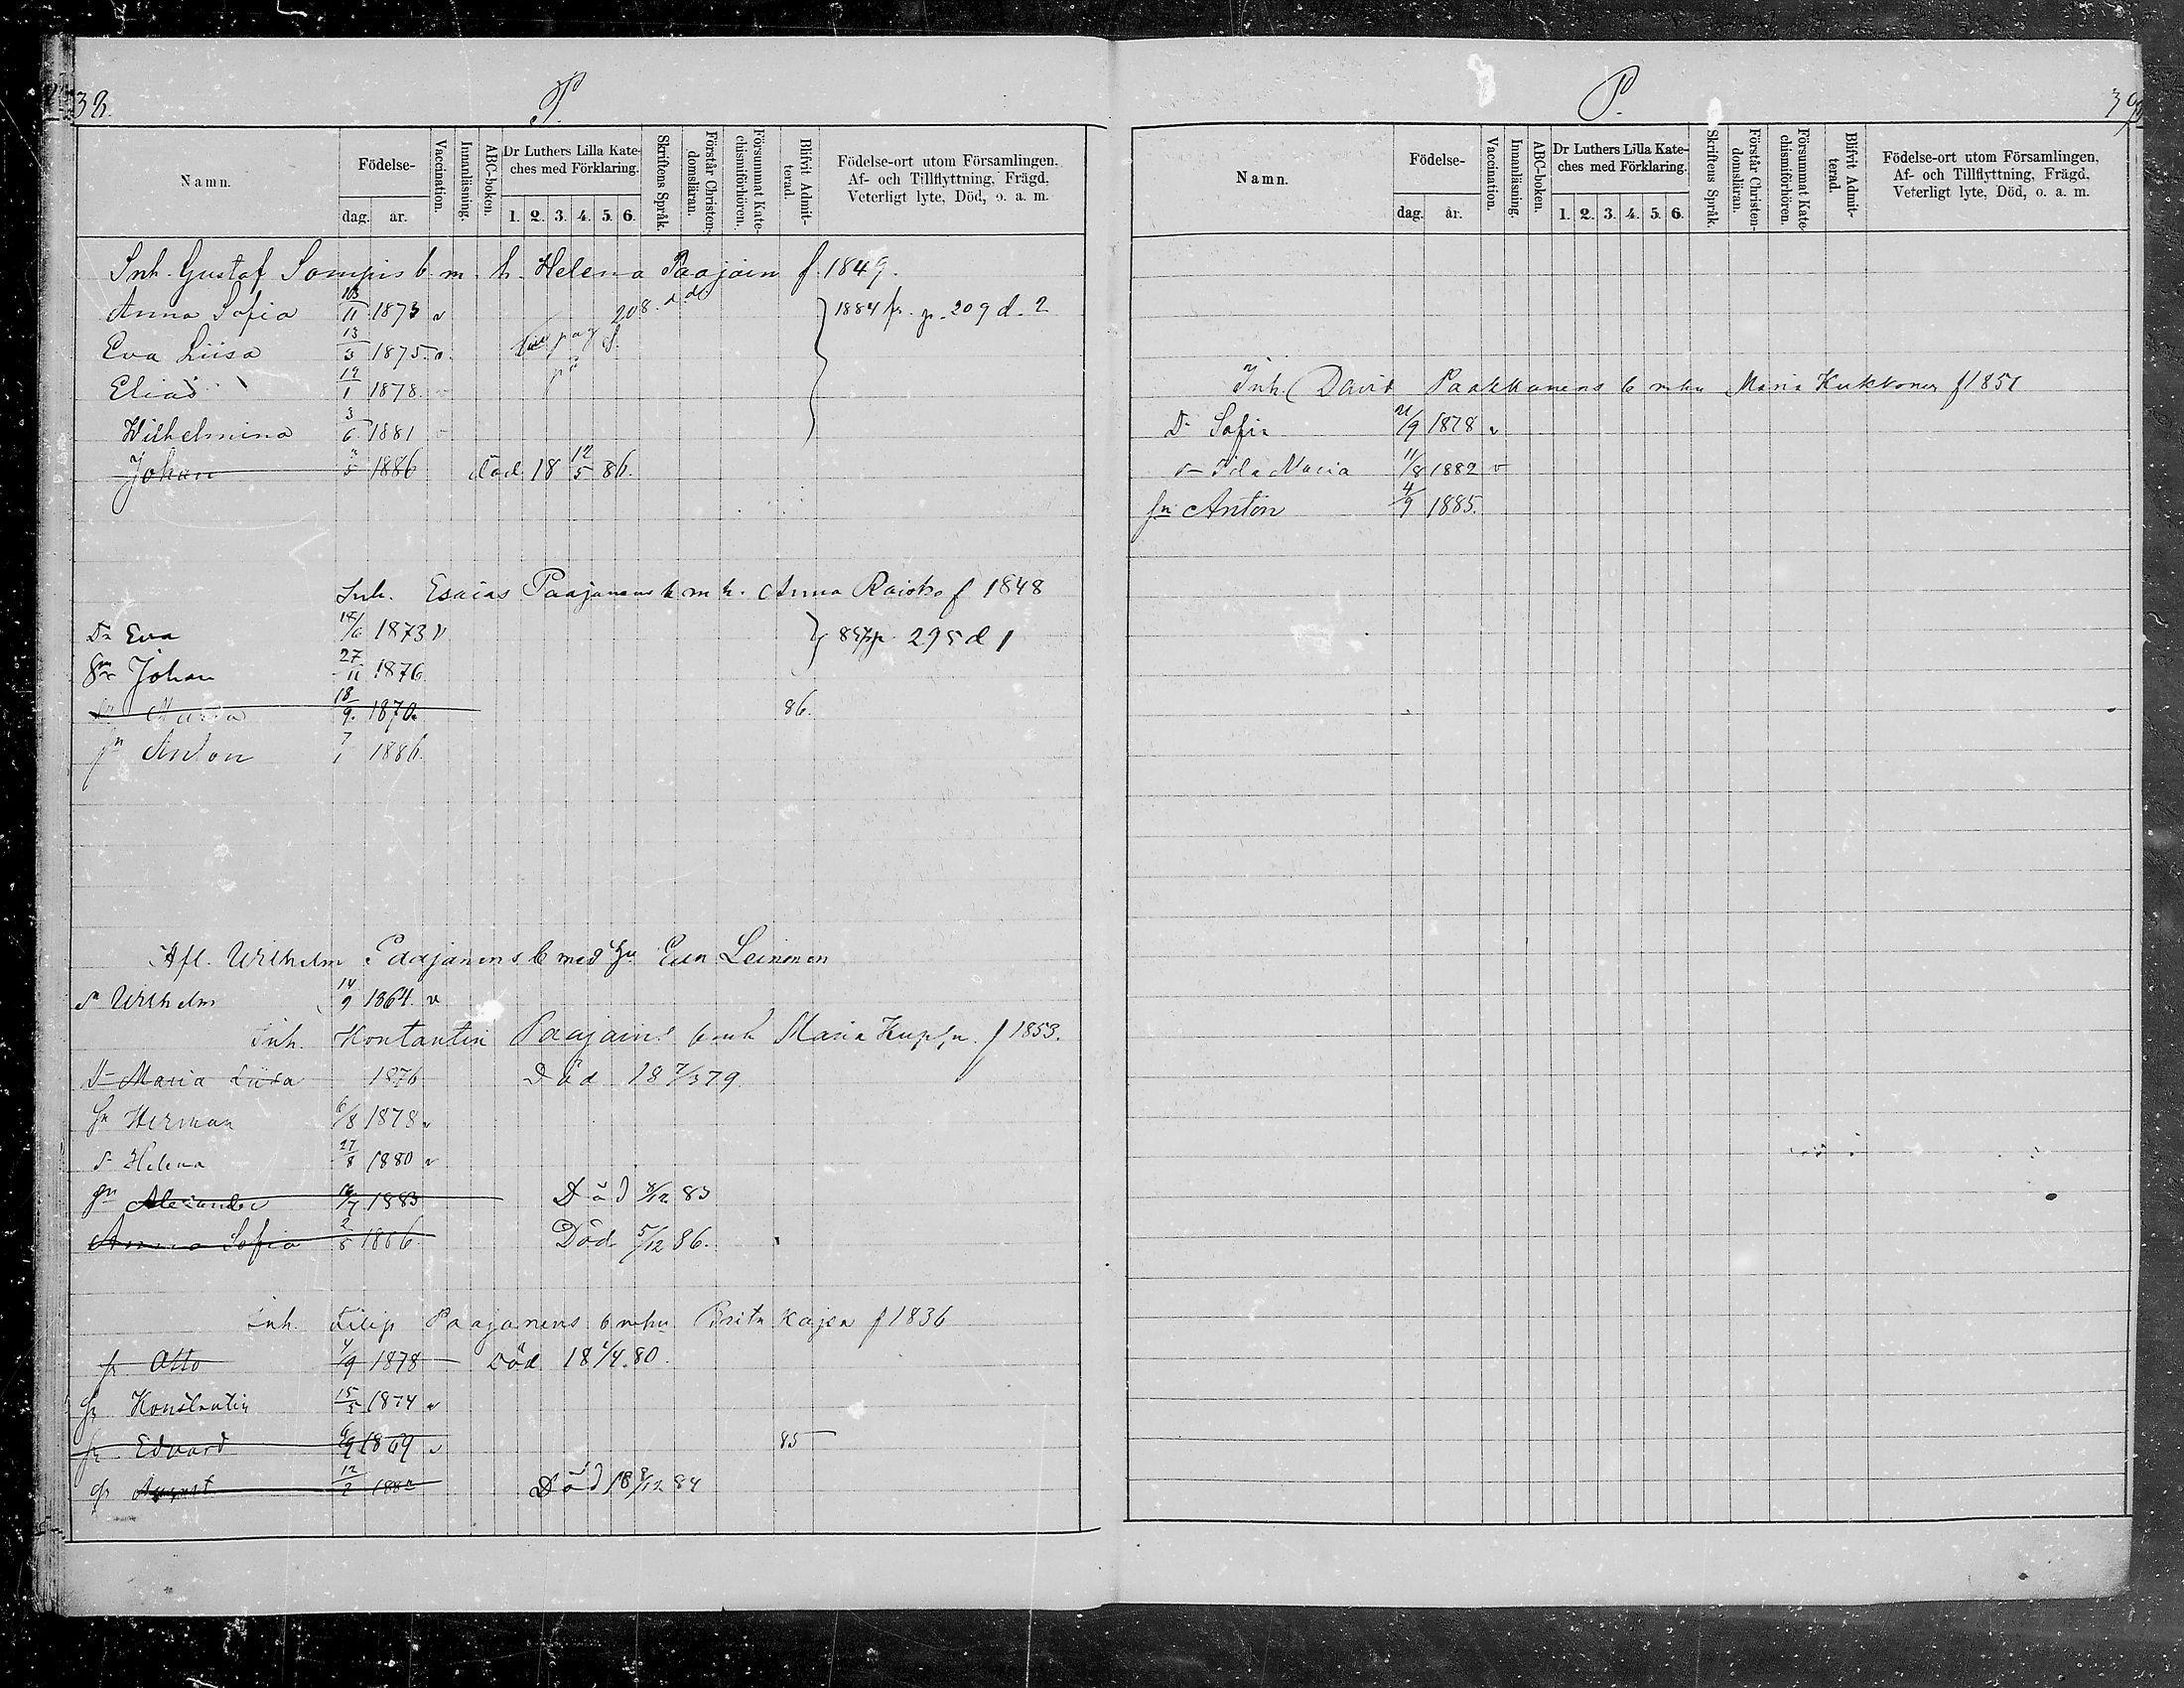 38.
P.
Namn.
Födelse-
dag. år.
Vaccination.
Innanläsning.
ABC-boken.
Dr Luthers Lilla Kate-
ches med Förklaring.
1. 2. 3. 4. 5. 6.
Skriftens Språk.
Förstår Christen-
domsläran.
Försummat Kate-
chismiförhören.
Blifvit Admit-
terad.
Födelse-ort utom Församlingen.
Af- och Tillflyttning, Frägd,
Veterligt lyte, Död, o. a. m.
Inh. Gustaf b. m. h. Helena Paajain f. 1849.
Anna Sofia 11 1873 v 1884 fr. p. 209 d. 2
Eva Liisa 13/3 1875. v. pag 208
Elias 19/1 1878.
Wilhelmina 3/6 1881
Johan 3/5 1886 död 18 12/5 86.
Inh. Esaias Paajanens b m h. Anna f 1848
Dr Eva 1873 v 295 d 1
Sn Johan 27/11 1876
Maria 18/9. 1870. 86.
sn Anton 7/1 1886.
Afl. Wilhelm Paajanens b med hu Eva Leinonen
sn Wilhelm 14/9 1864. v
Inh. Kontantin Paajains b m h Maria f 1853.
Dr Maria Liisa 1876 Död 18 7/3 79
sn Herman 6/8 1878 v
d Helena 27/8 1880 v
sn Alexander 1883 Död 8/12 83
Anna Sofia 2/5 1886 Död 5/12 86.
Inh. Filip Paajanens b m hu Brita Kajen f 1836
sn Otto 4/9 1878 Död 18 1/4. 80.
sn Konstantin 15/5 1874 v
sn Edvard 6/9 1869 v 85
sn August 12/2 1882 Död 18 8/12 84
P.
39
Namn.
Födelse-
dag. år.
Vaccination.
Innanläsning.
ABC-boken.
Dr Luthers Lilla Kate-
ches med Förklaring.
1. 2. 3. 4. 5. 6.
Skriftens Språk.
Förstår Christen-
domsläran.
Försummat Kate-
chismiförhören.
Blifvit Admit-
terad.
Födelse-ort utom Församlingen,
Af- och Tillflyttning, Frägd,
Veterligt lyte, Död, o. a. m.
Inh. David Paakkanens b m hu Maria Kukkonen f 1851
Dr Sofia 21/9 1878 v
d Ida Maria 11/8 1882 v
sn Anton 4/9 1885.